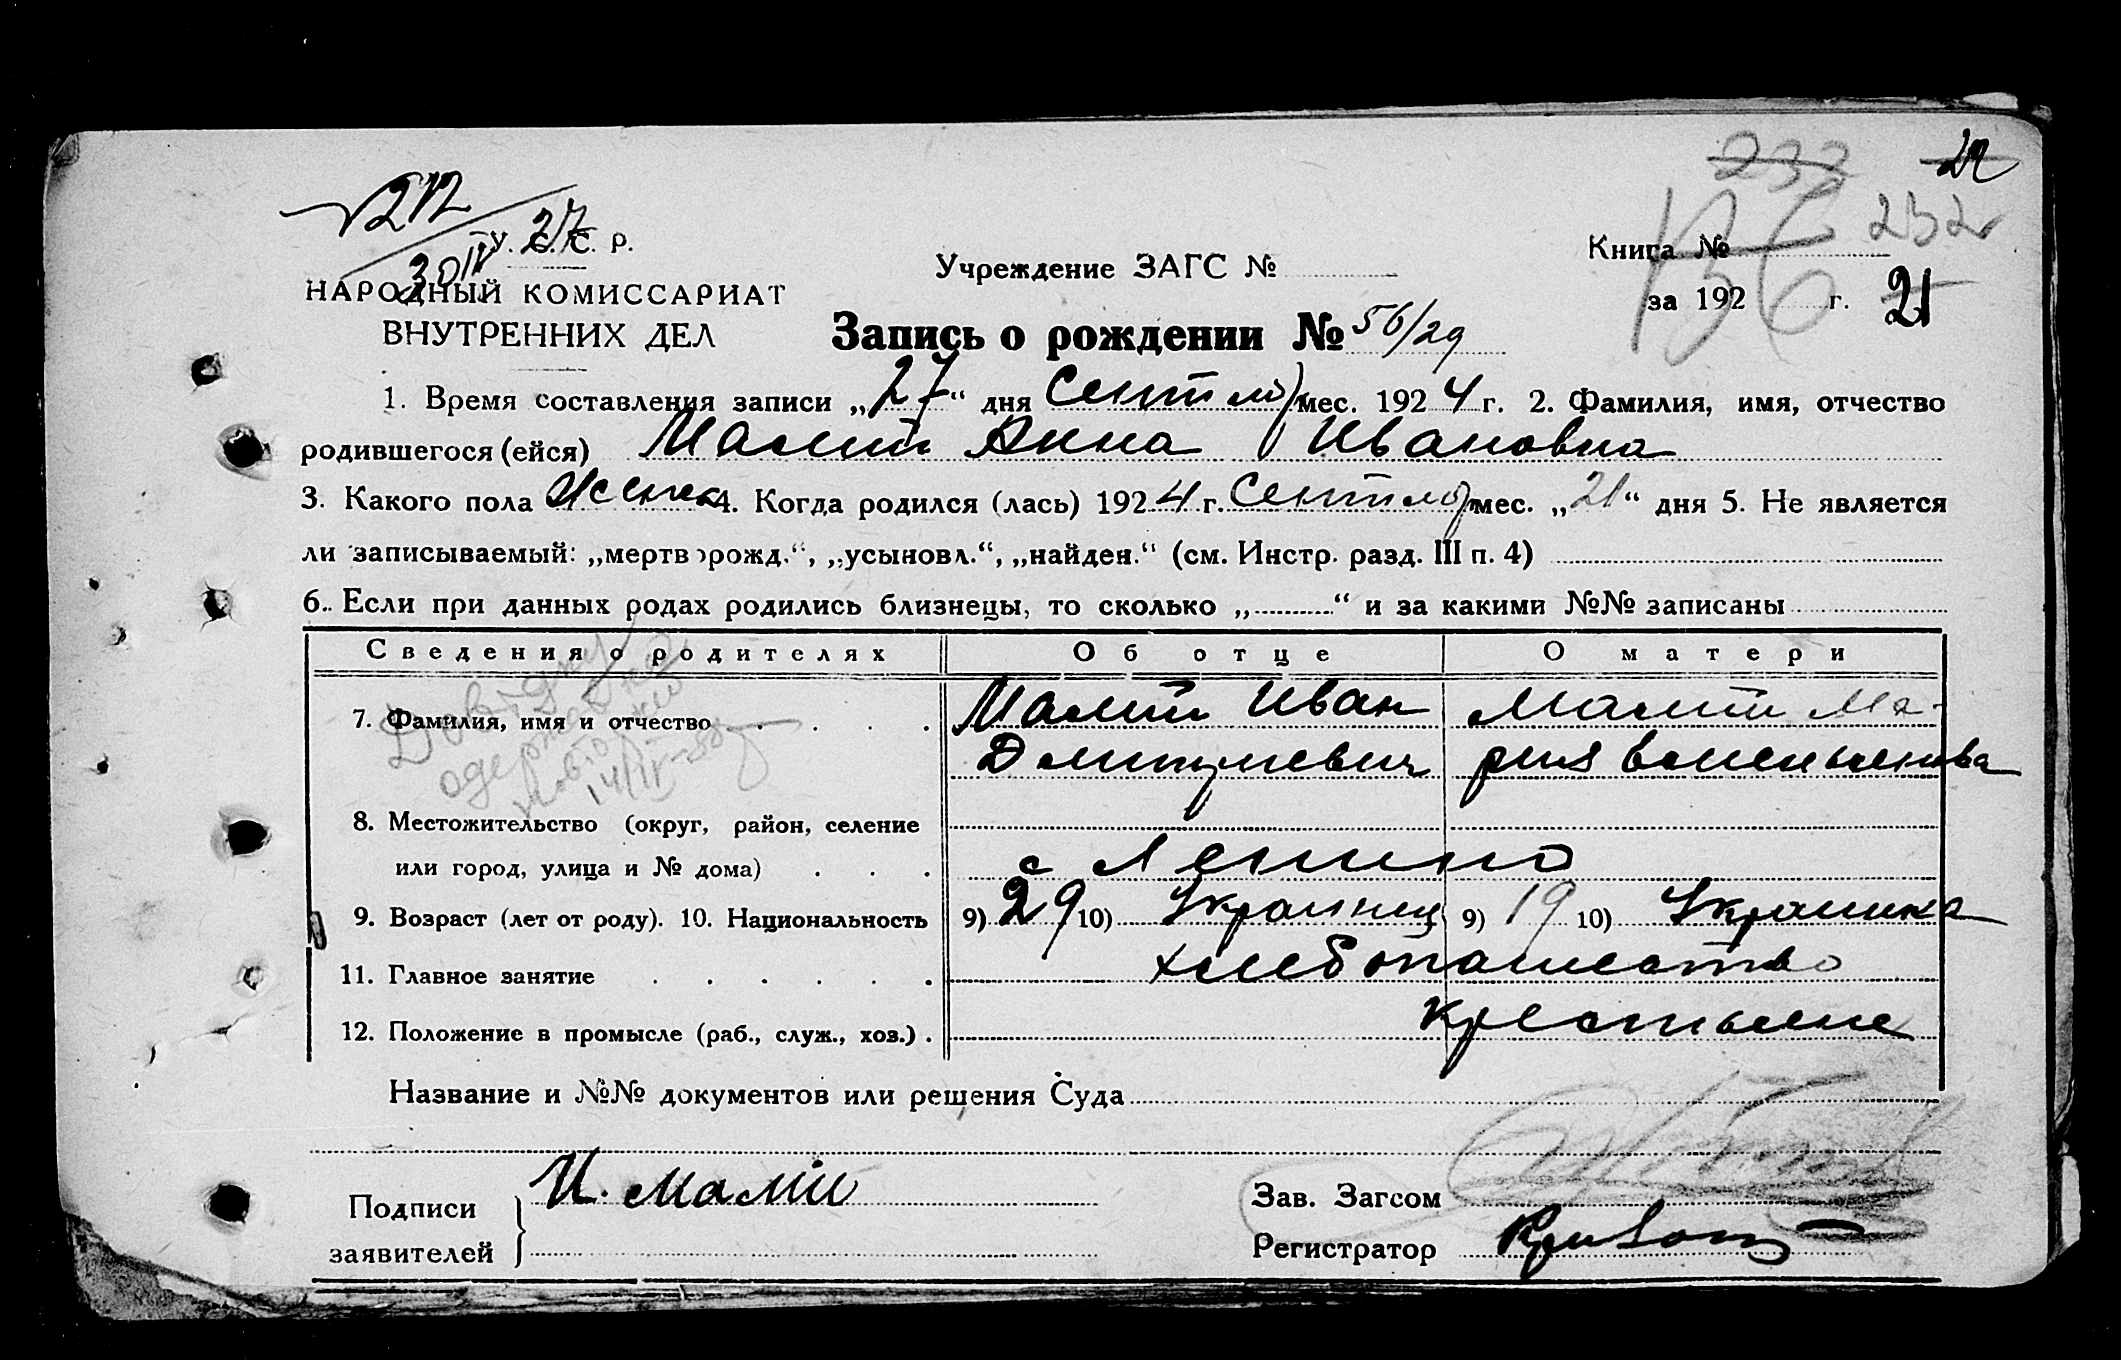 212
30/IV 27
232
22
У. С. С. Р.
НАРОДНЫЙ КОМИССАРИАТ
ВНУТРЕННИХ ДЕЛ
Учреждение ЗАГС №
Книга № 136 232
за 192 г. 21
Запись о рождении № 56/29
1. Время составления записи „27“ дня Сентяб мес. 1924 г. 2. Фамилия, имя, отчество
родившегося (ейся) Малий Анна Ивановна
3. Какого пола Женск 4. Когда родился (лась) 1924 г. Сентябр мес. „21“ дня 5. Не является
ли записываемый: „мертворожд.“, „усыновл.“, „найден.“ (см. Инстр. разд. III п. 4)
6. Если при данных родах родились близнецы, то сколько „ “ и за какими №№ записаны
Сведения о родителях Об отце О матери
Довідку
одержано
14/IV-55
7. Фамилия, имя и отчество Малий Иван Малий Ма-
Дмитриевич рия
8. Местожительство (округ, район, селение
или город, улица и № дома) с Ленино
9. Возраст (лет от роду). 10. Национальность 9) 29 10) Украинец 9) 19 10) Украинка
11. Главное занятие хлебопашество
12. Положение в промысле (раб., служ., хоз.) крестьяне
Название и №№ документов или решения Суда
Подписи
заявителей
И. Малий
Зав. Загсом
Регистратор